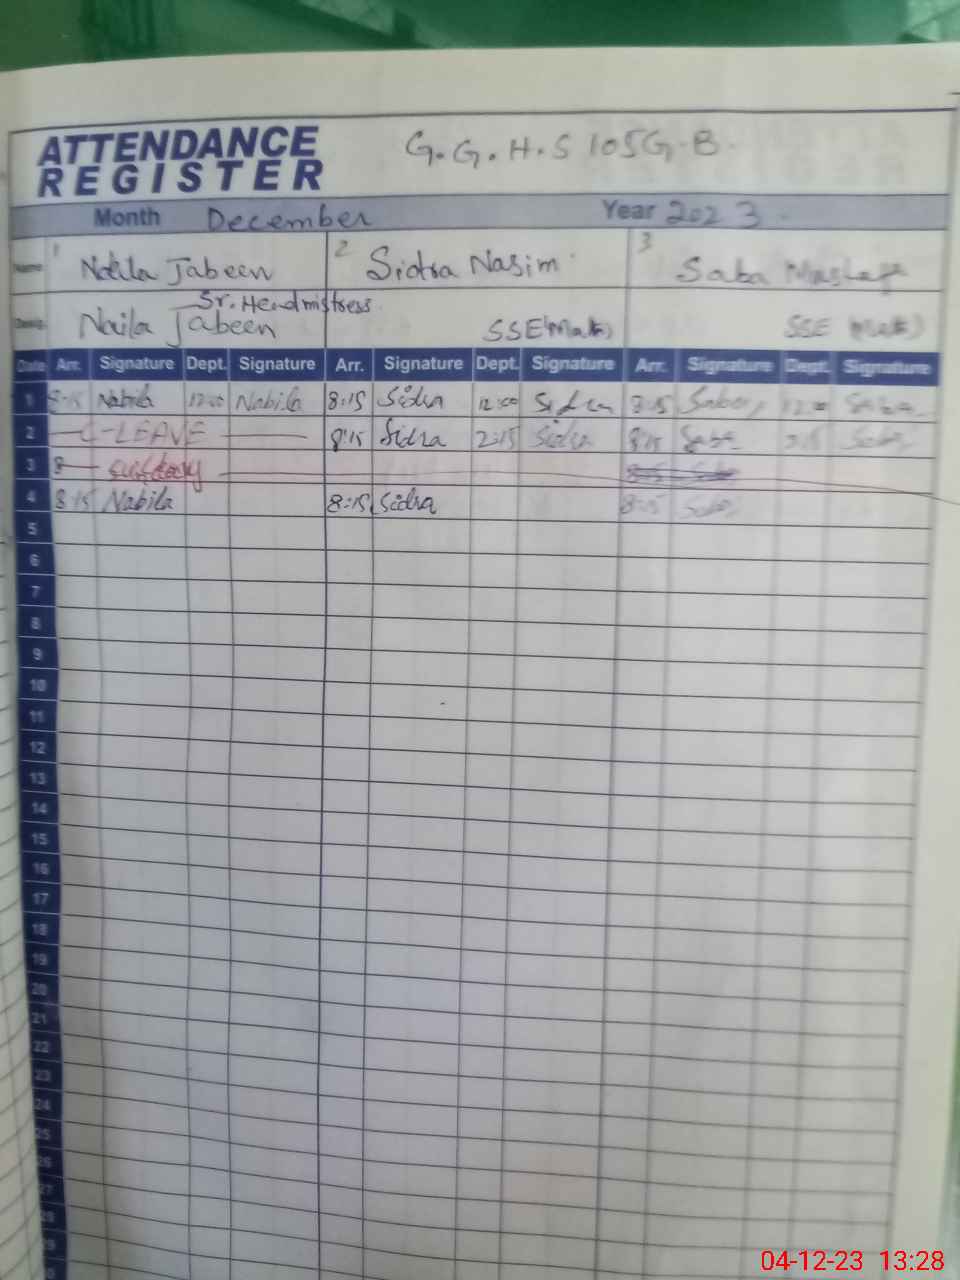 ATTENDANCE
REGISTER
G.G.H.S 105G.B.
Month December Year 2023.
Name 1 Jabeen 2 Sidra Nasim 3 Saba
Sr. Headmistress.
Desig. Naila Jabeen SSE (Math) SSE (Math)
Date Arr. Signature Dept. Signature Arr. Signature Dept. Signature Arr. Signature Dept. Signature
1 8:15 Nabila 12:00 Nabila 8:15 Sidra 12:00 Sidra 8:15 Saba 12:00 Saba
2 C-LEAVE 8:15 Sidra 2:15 Sidra 8:15 Saba 2:15 Saba
3 Sunday
4 8:15 Nabila 8:15 Sidra 8:15 Saba
5
6
7
8
9
10
11
12
13
14
15
16
17
18
19
20
21
22
23
24
25
26
27
28
29
04-12-23 13:28